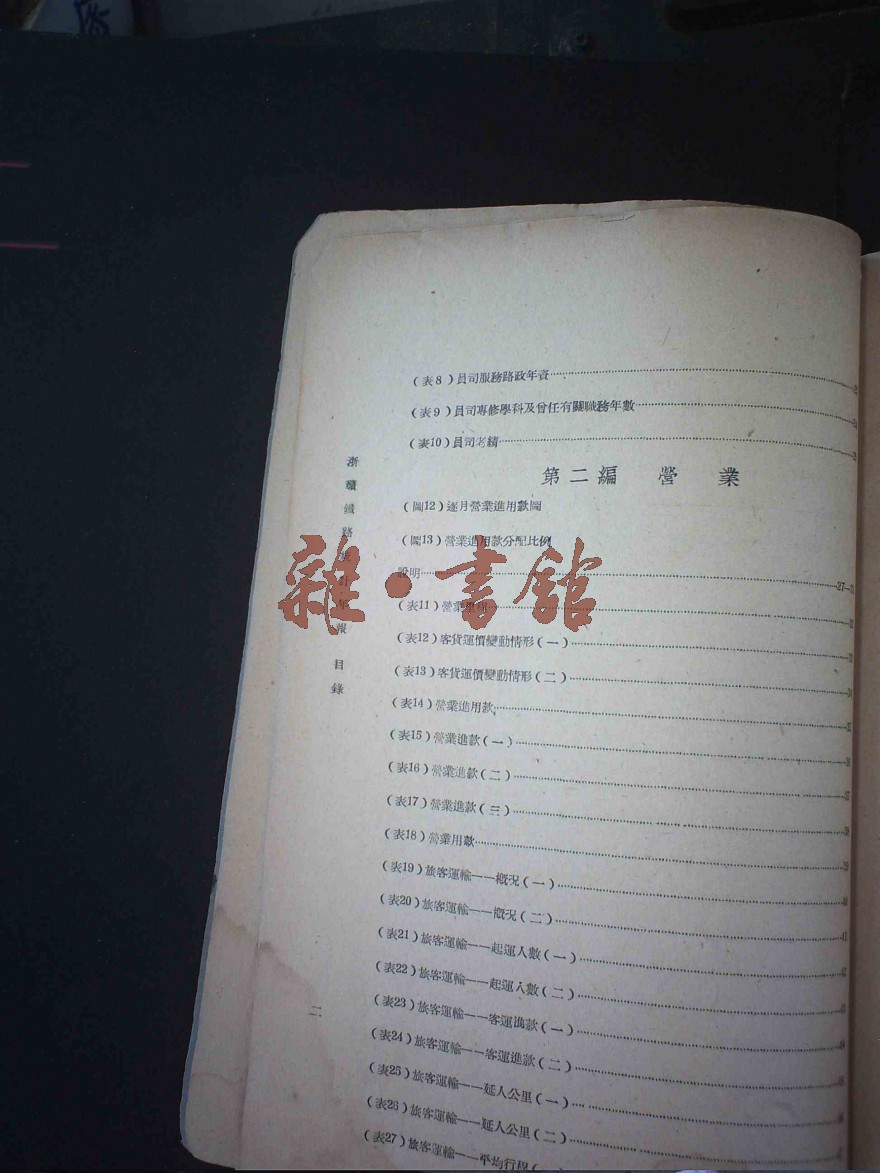 （表8）員司服務路政年資
（表9）員司專修學科及曾任有關職務年數
（表10）員司考績
第二編 營業
（圖12）逐月營業進用款圖
（圖13）營業進用款分配比例
說明 27
（表11）營業
（表12）客貨運價變動情形（一）
（表13）客貨運價變動情形（二）
（表14）營業進用款
（表15）營業進款（一）
（表16）營業進款（二）
（表17）營業進款（三）
（表18）營業用款
（表19）旅客運輸——概況（一）
（表20）旅客運輸——概況（二） 41
（表21）旅客運輸——起運人數（一） 42
（表22）旅客運輸——起運人數（二）
（表23）旅客運輸——客運進款（一）
（表24）旅客運輸——客運進款（二）
（表25）旅客運輸——延人公里（一）
（表26）旅客運輸——延人公里（二）
（表27）旅客運輸——平均行程
浙贛鐵路 年報 目錄
二
雜·書館